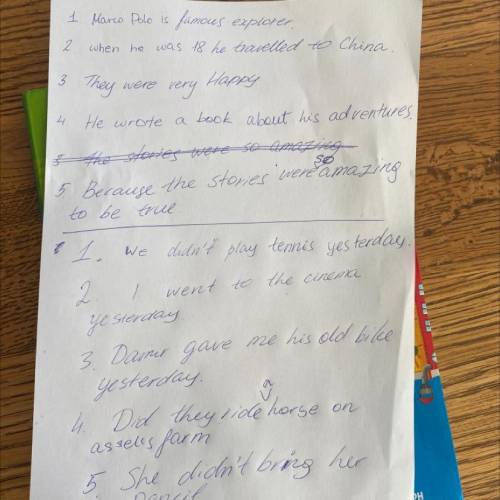 1 Marco Polo is famous explorer.
2 when he was 18 he travelled to China.
3 They were very Happy
4 He wrote a book about his adventures.
5 the stories were so amazing
so
5. Because the stories were amazing
to be true
1. we didn't play tennis yesterday.
2. I went to the cinema
yesterday
3. Damir gave me his old bike
yesterday.
a
4. Did they ride horse on
farm
5 She didn't bring her
pencil